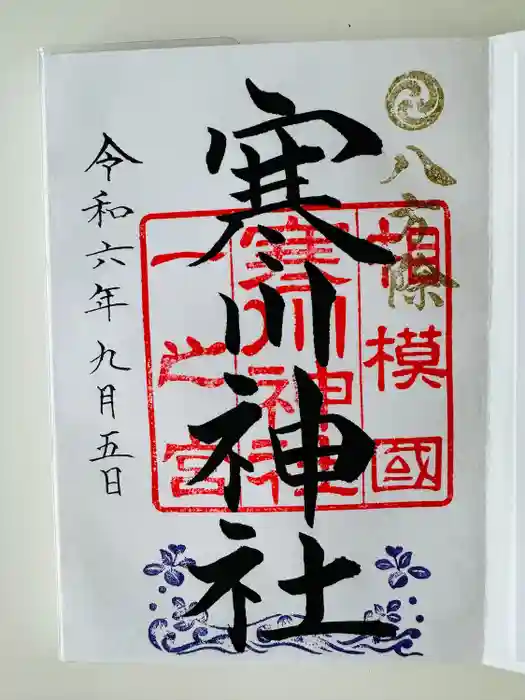 八方除
相模國
寒川神社
一之宮
寒川神社
令和六年九月五日